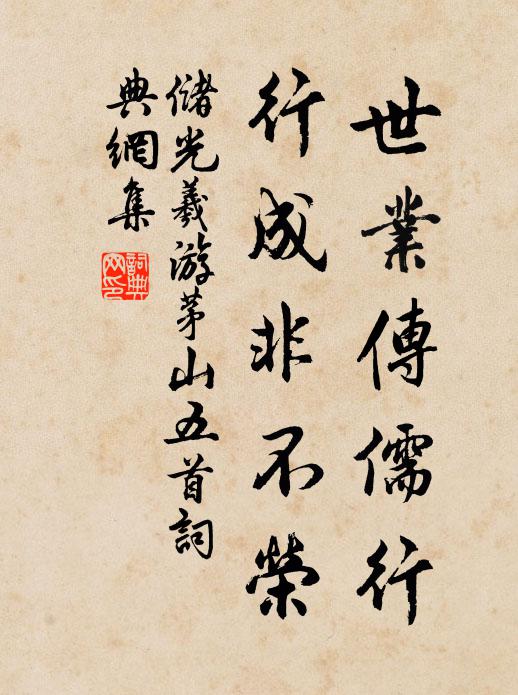 世業傳儒行
行成非不榮
儲光羲游茅山五首詞
典網集
詞典網印